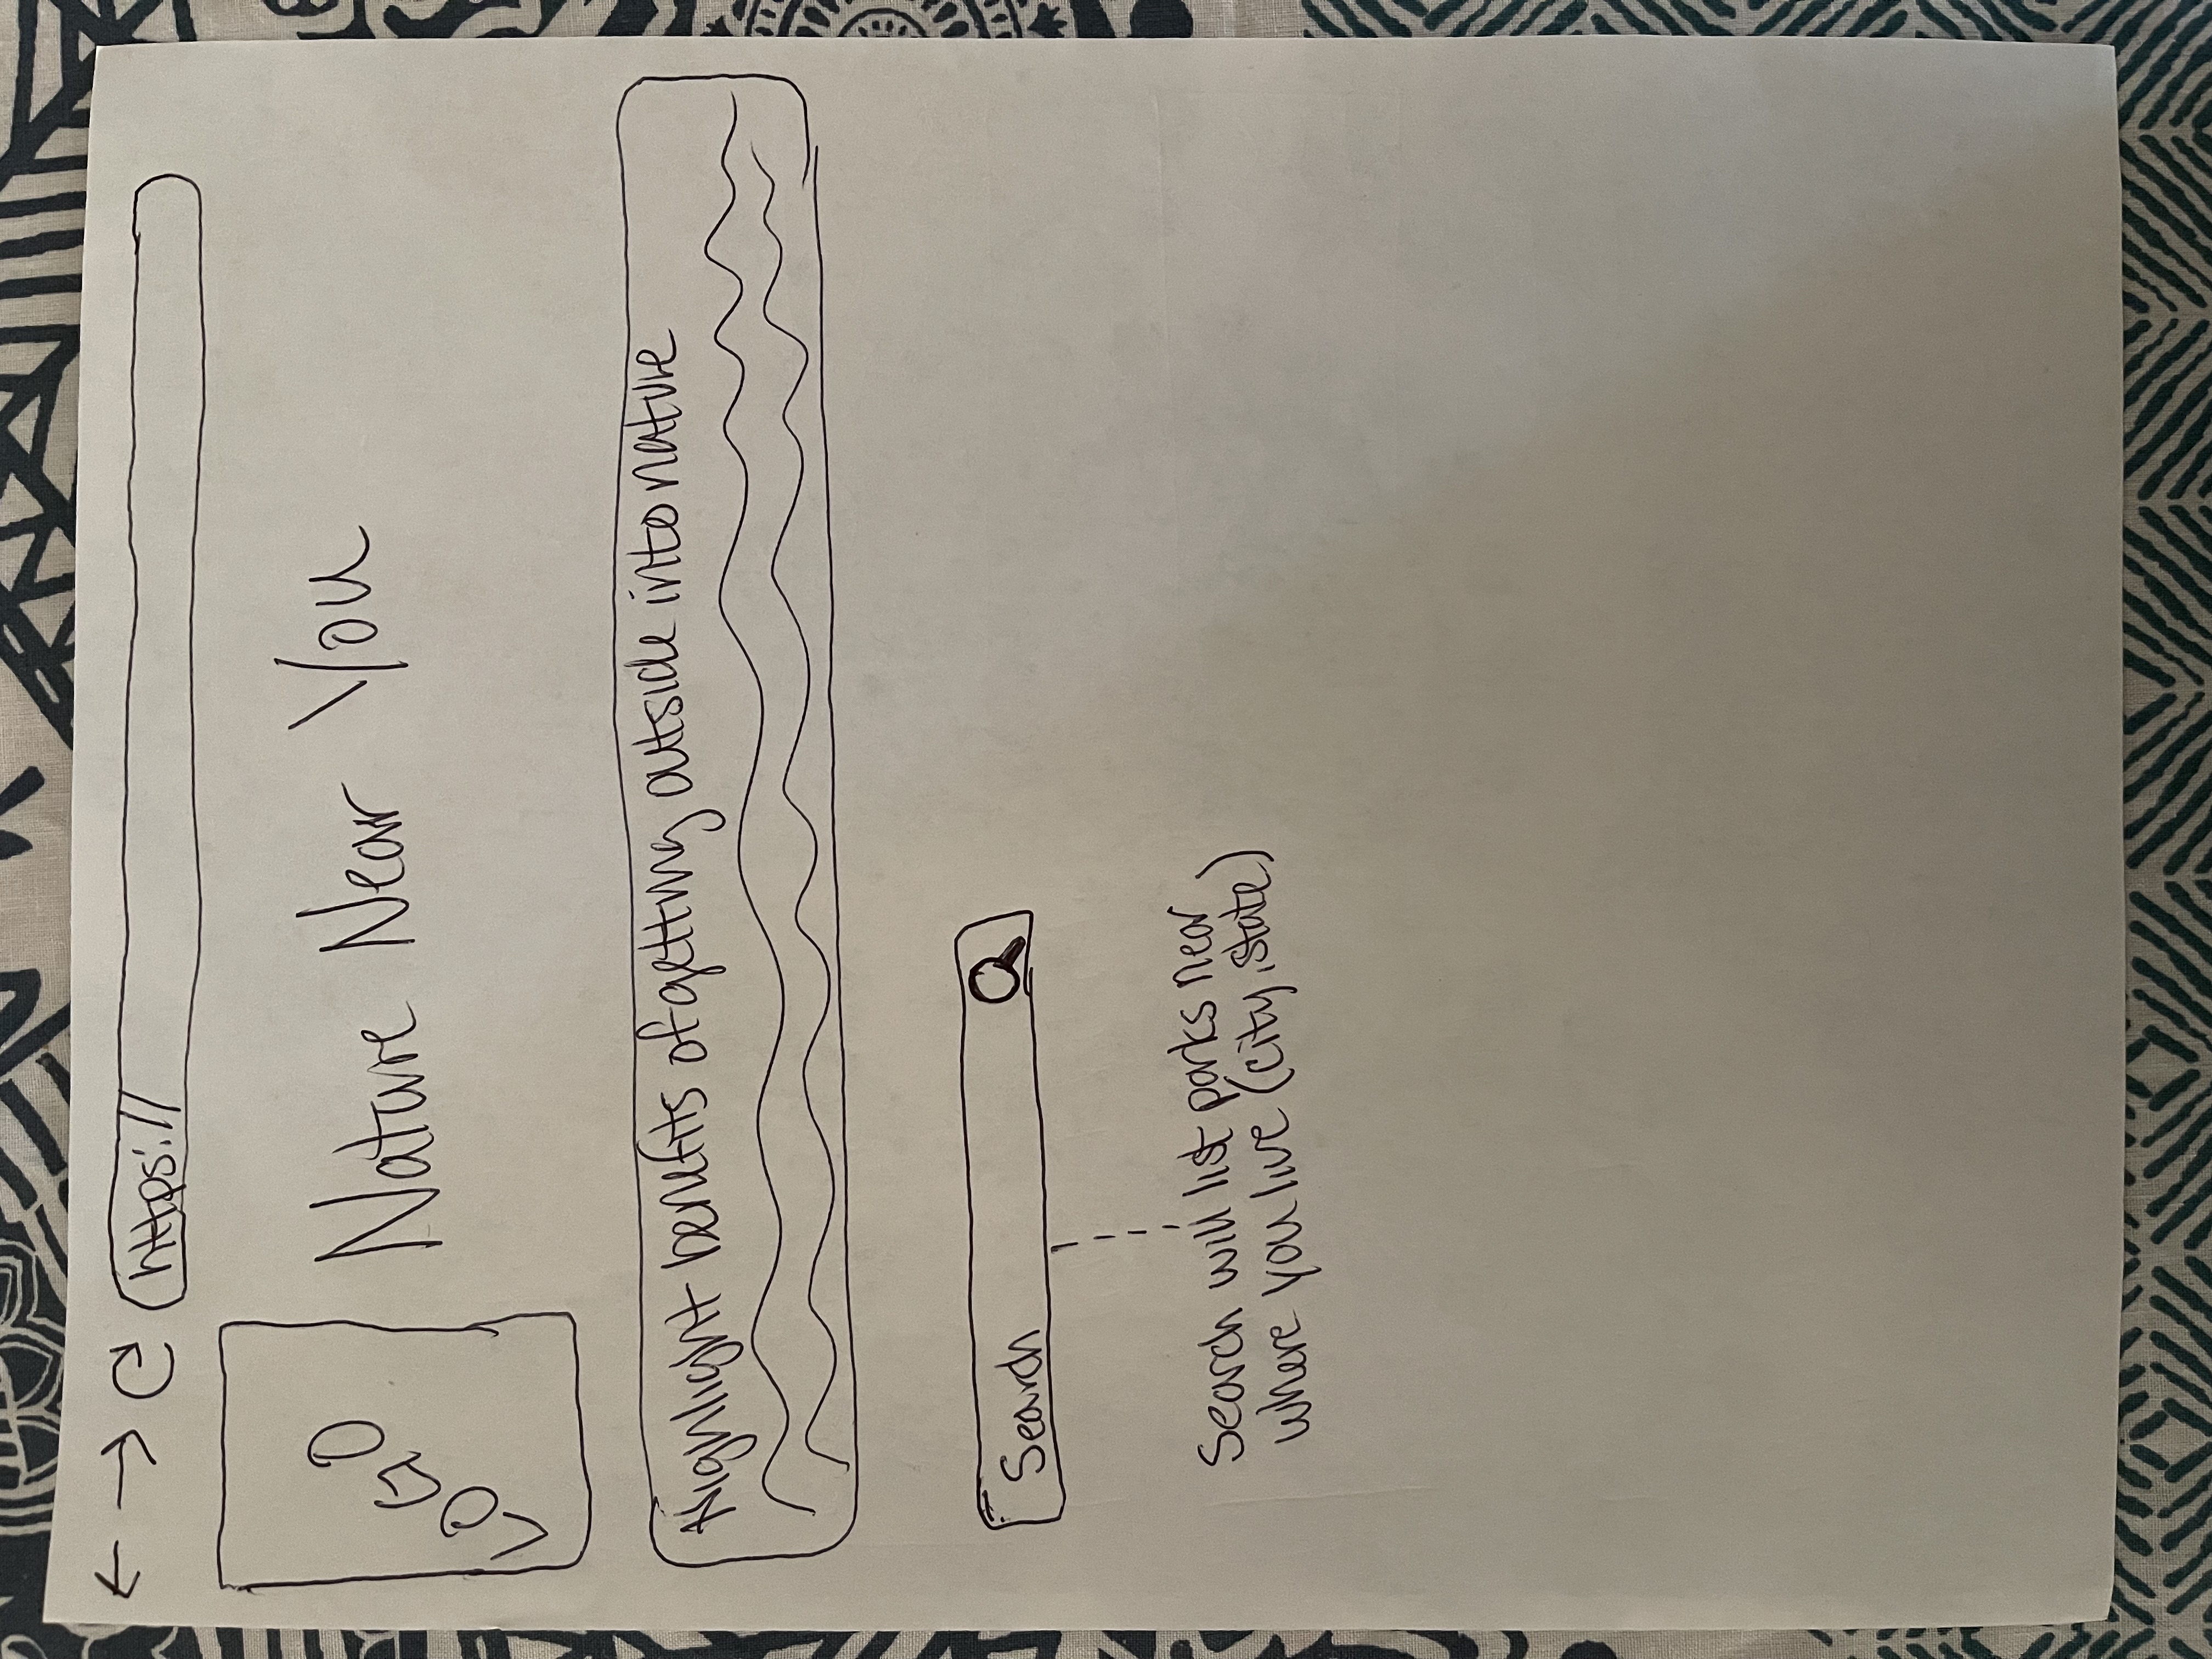 https://
LOGO
Nature Near You
Highlight benefits of getting outside into nature
Search
Search will list parks near
where you live (city, state)